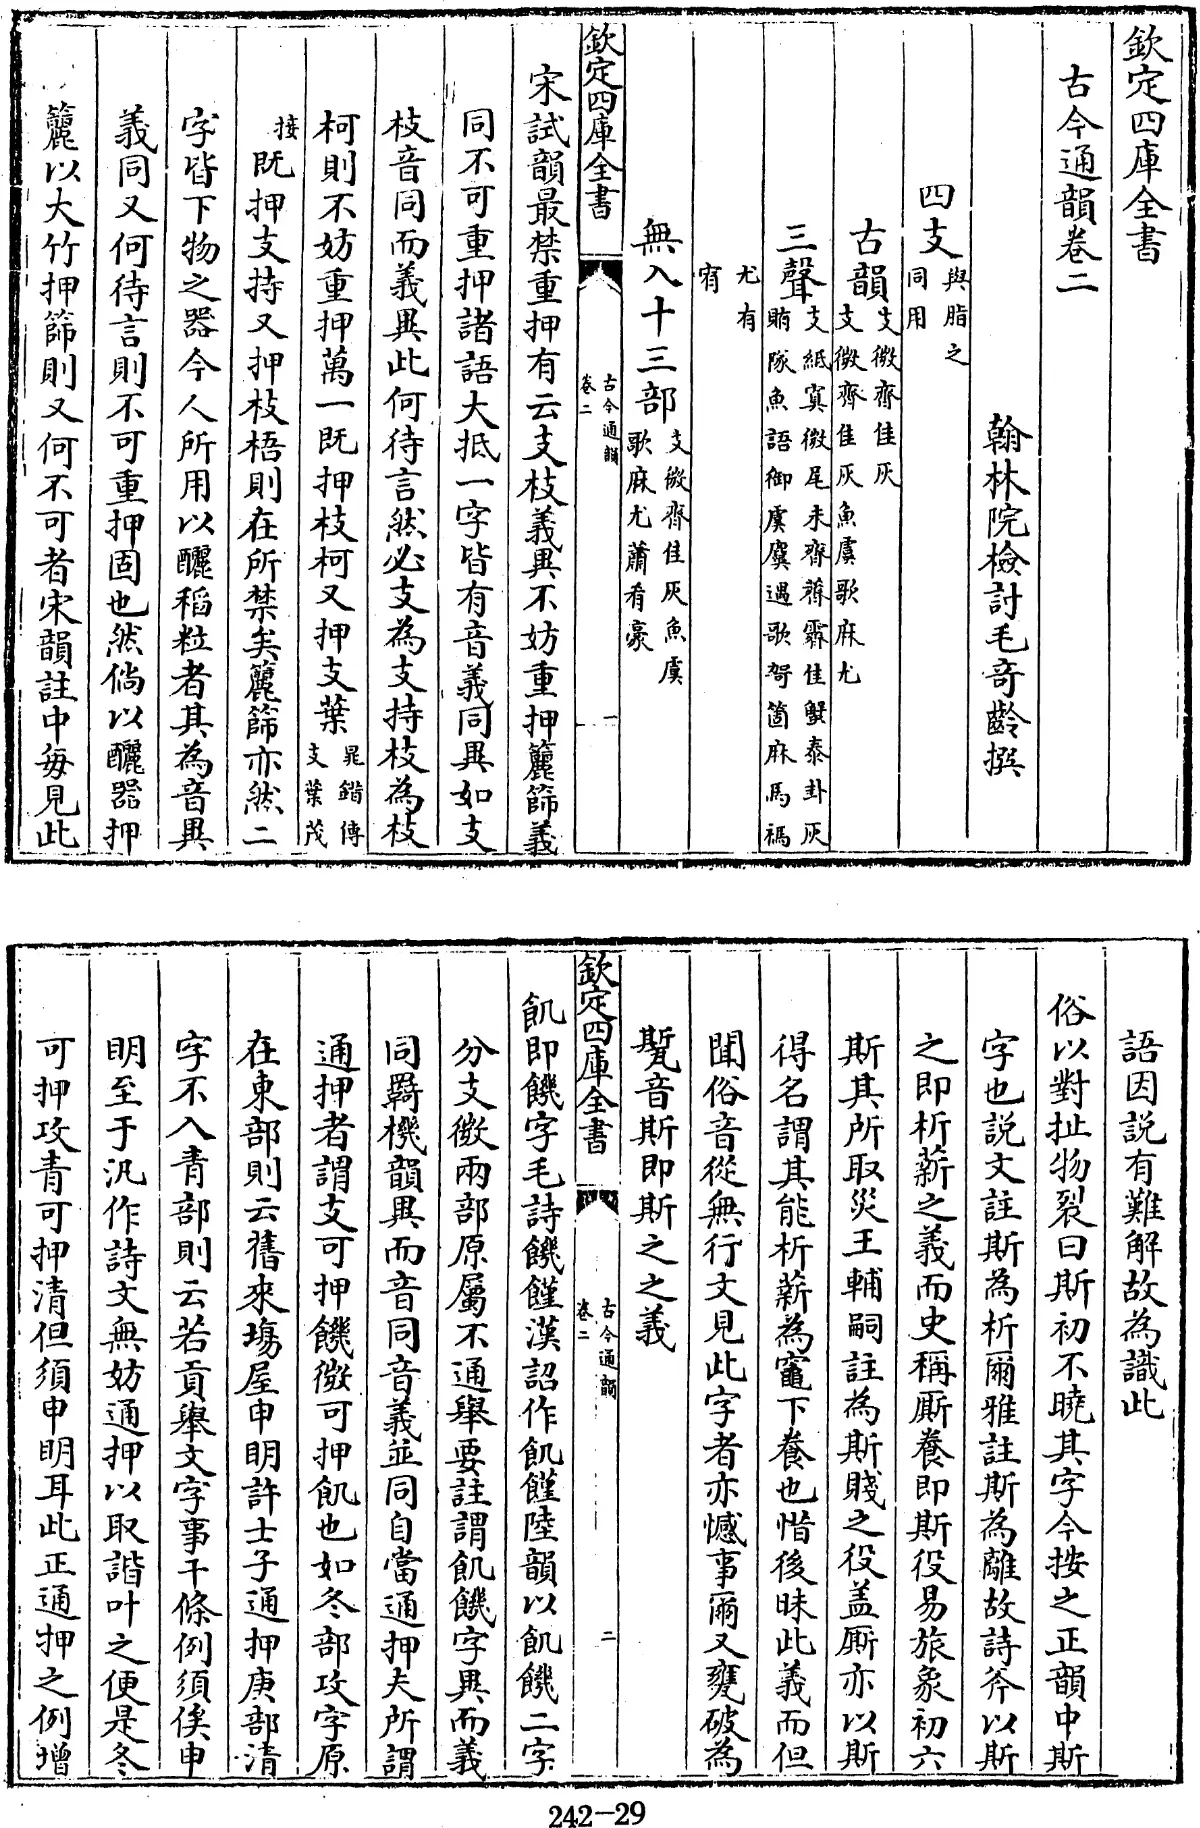 欽定四庫全書
古今通韻卷二
翰林院檢討毛奇齡撰
四支與脂之同用
古韻支微齊佳灰支微齊佳灰魚虞歌麻尤
三聲支紙寘微尾未齊薺霽佳蟹泰卦灰賄隊魚語御虞麌遇歌哿箇麻馬禡
尤有宥
無入十三部支微齊佳灰魚虞歌麻尤蕭肴豪
欽定四庫全書
古今通韻
卷二
一
宋試韻最禁重押有云支枝義異不妨重押籭篩義
同不可重押諸語大抵一字皆有音義同異如支
枝音同而義異此何待言然必支為支持枝為枝
柯則不妨重押萬一既押枝柯又押支葉鼂錯傳支葉茂
接既押支持又押枝梧則在所禁矣籭篩亦然二
字皆下物之器今人所用以釃稻粒者其為音異
義同又何待言則不可重押固也然倘以釃器押
籭以大竹押篩則又何不可者宋韻註中每見此
語因説有難解故為識此
俗以對扯物裂曰斯初不曉其字今按之正韻中斯
字也説文註斯為析爾雅註斯為離故詩斧以斯
之即析薪之義而史稱厮養即斯役易旅象初六
斯其所取災王輔嗣註為斯賤之役盖厮亦以斯
得名謂其能析薪為竈下養也惜後昧此義而但
聞俗音從無行文見此字者亦憾事爾又甕破為
㽄音斯即斯之之義
欽定四庫全書
古今通韻
卷二
二
飢即饑字毛詩饑饉漢詔作飢饉陸韻以飢饑二字
分支微兩部原屬不通舉要註謂飢饑字異而義
同羇機韻異而音同音義並同自當通押夫所謂
通押者謂支可押饑微可押飢也如冬部攻字原
在東部則云舊來塲屋申明許士子通押庚部清
字不入青部則云若貢舉文字事干條例須俟申
明至于汎作詩文無妨通押以取諧叶之便是冬
可押攻青可押清但須申明耳此正通押之例增
242-29